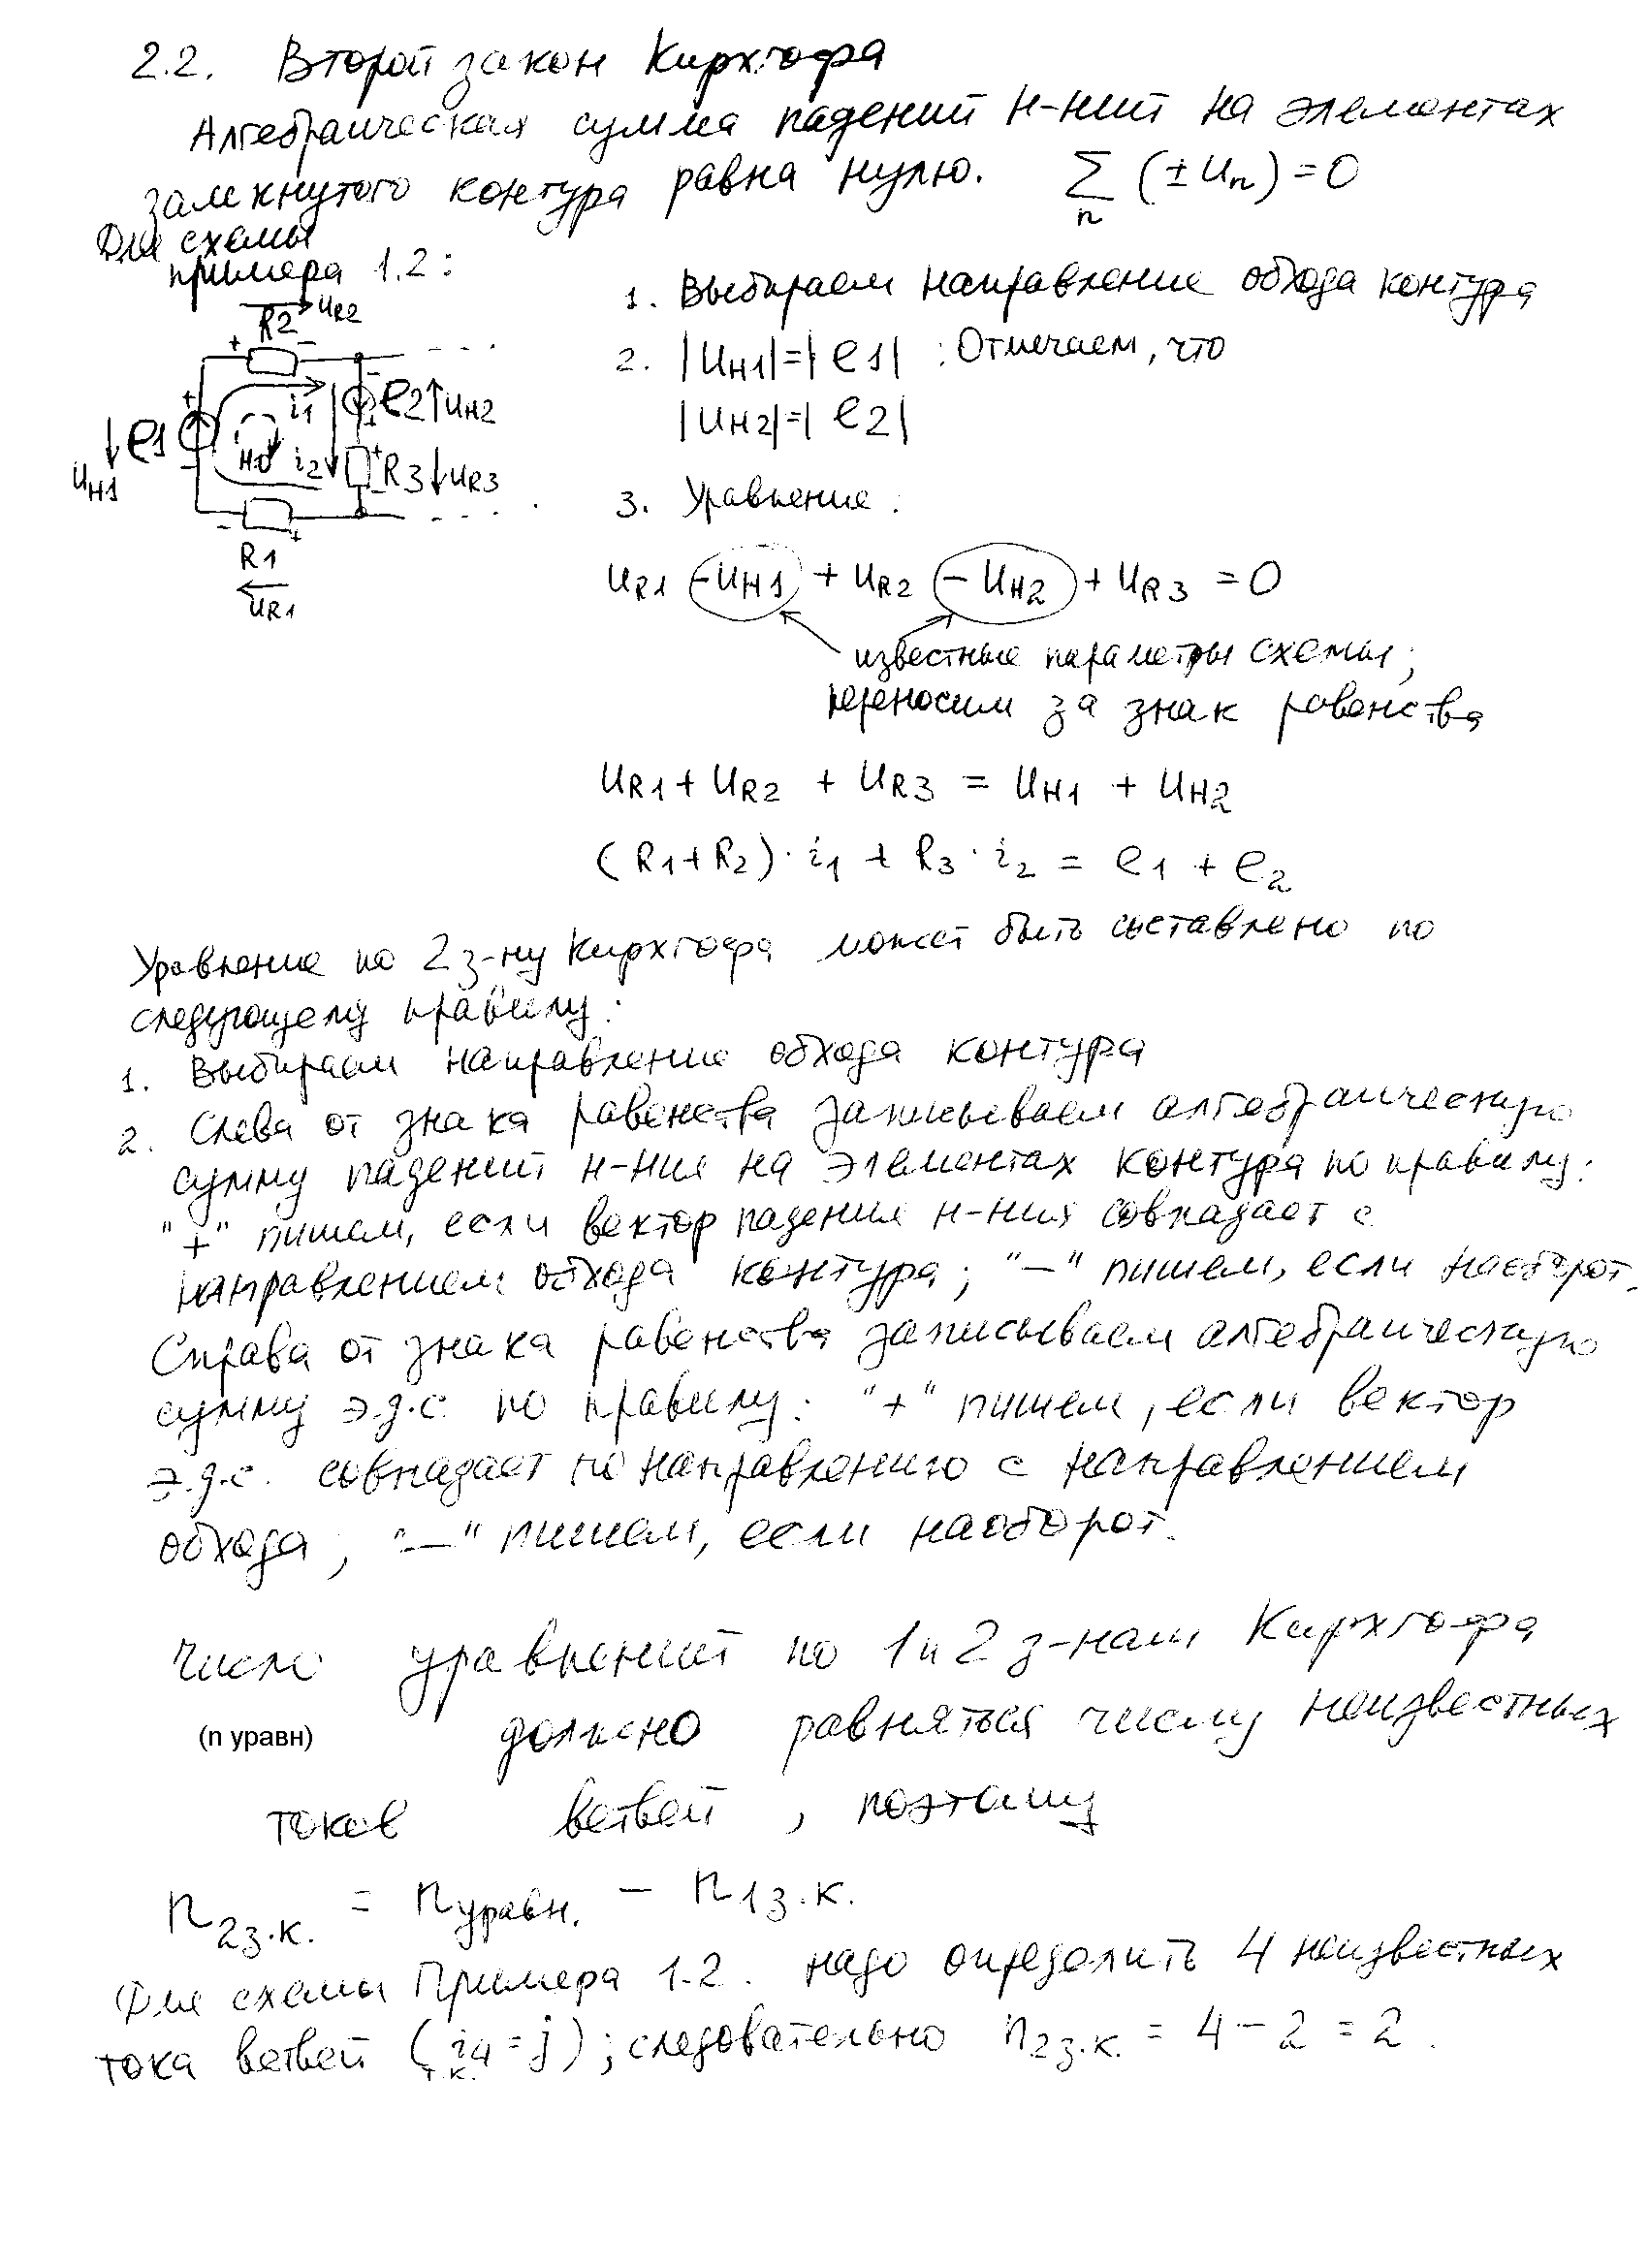 2.2. Второй закон Кирхгофа
Алгебраическая сумма падений н-ний на элементах
замкнутого контура равна нулю. ∑ (±Un) = 0
n
Для схемы
примера 1.2:
UR2
R2
+ −
e1
UН1
i1
e2 UН2
i2
R3 UR3
R1
UR1
1. Выбираем направление обхода контура
2. |UН1|=|e1| : Отмечаем, что
|UН2|=|e2|
3. Уравнение:
UR1 −UН1 + UR2 −UН2 + UR3 = 0
известные параметры схемы;
переносим за знак равенства
UR1 + UR2 + UR3 = UН1 + UН2
(R1+R2)·i1 + R3·i2 = e1 + e2
Уравнение по 2 з-ну Кирхгофа может быть составлено по
следующему правилу:
1. Выбираем направление обхода контура
2. Слева от знака равенства записываем алгебраическую
сумму падений н-ния на элементах контура по правилу:
"+" пишем, если вектор падения н-ния совпадает с
направлением обхода контура; "—" пишем, если наоборот.
Справа от знака равенства записываем алгебраическую
сумму э.д.с. по правилу: "+" пишем, если вектор
э.д.с. совпадает по направлению с направлением
обхода; "—" пишем, если наоборот.
Число уравнений по 1 и 2 з-нам Кирхгофа
(n уравн) должно равняться числу неизвестных
токов ветвей, поэтому
n2з.к. = nуравн. − n1з.к.
Для схемы Примера 1.2. надо определить 4 неизвестных
тока ветвей (т.к. i4=j); следовательно n2з.к. = 4−2 = 2.